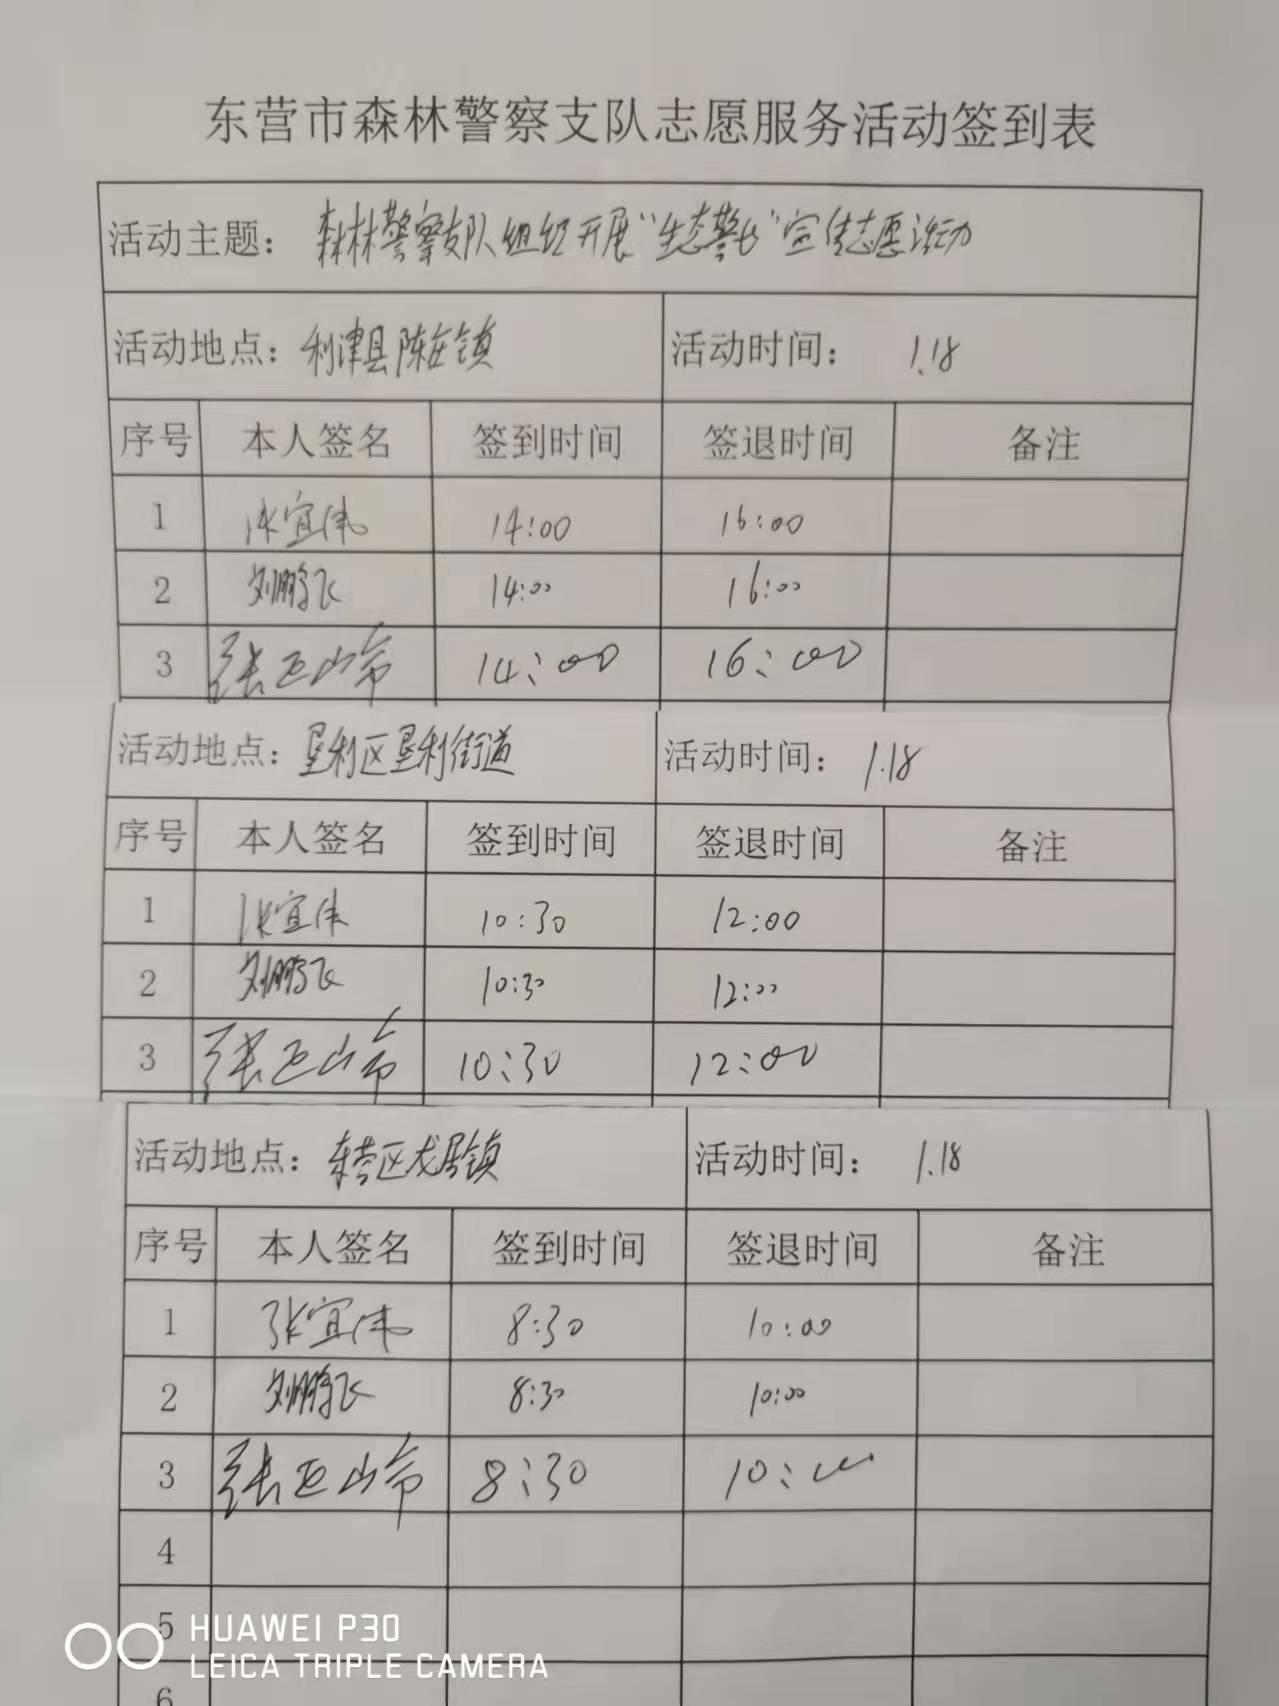 东营市森林警察支队志愿服务活动签到表
活动主题: 森林警察支队组织开展“生态警长”宣传志愿活动
活动地点: 利津县陈庄镇 活动时间: 1.18
序号 本人签名 签到时间 签退时间 备注
1 张宜伟 14:00 16:00
2 刘鹏飞 14:00 16:00
3 张 14:00 16:00
活动地点: 垦利区垦利街道 活动时间: 1.18
序号 本人签名 签到时间 签退时间 备注
1 张宜伟 10:30 12:00
2 刘鹏飞 10:30 12:00
3 张 10:30 12:00
活动地点: 东营区龙居镇 活动时间: 1.18
序号 本人签名 签到时间 签退时间 备注
1 张宜伟 8:30 10:00
2 刘鹏飞 8:30 10:00
3 张 8:30 10:00
4
5
6
HUAWEI P30
LEICA TRIPLE CAMERA